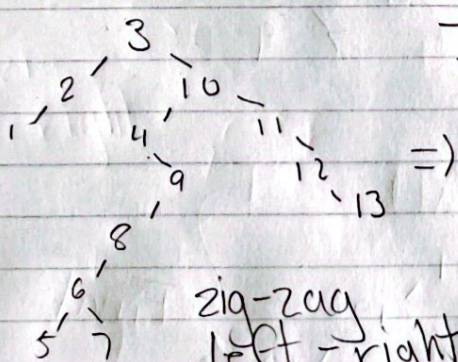 3
2 10
1 4 11
9 12 =>
13
8
6 zig-zag
5 7 left-right